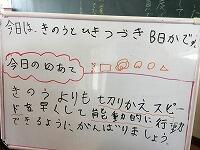 今日は、きのうとひきつづきB日かです。
今日のめあて
きのうよりも切りかえスピー
ドを早くして能動的に行動
できるようにがんばりましょう